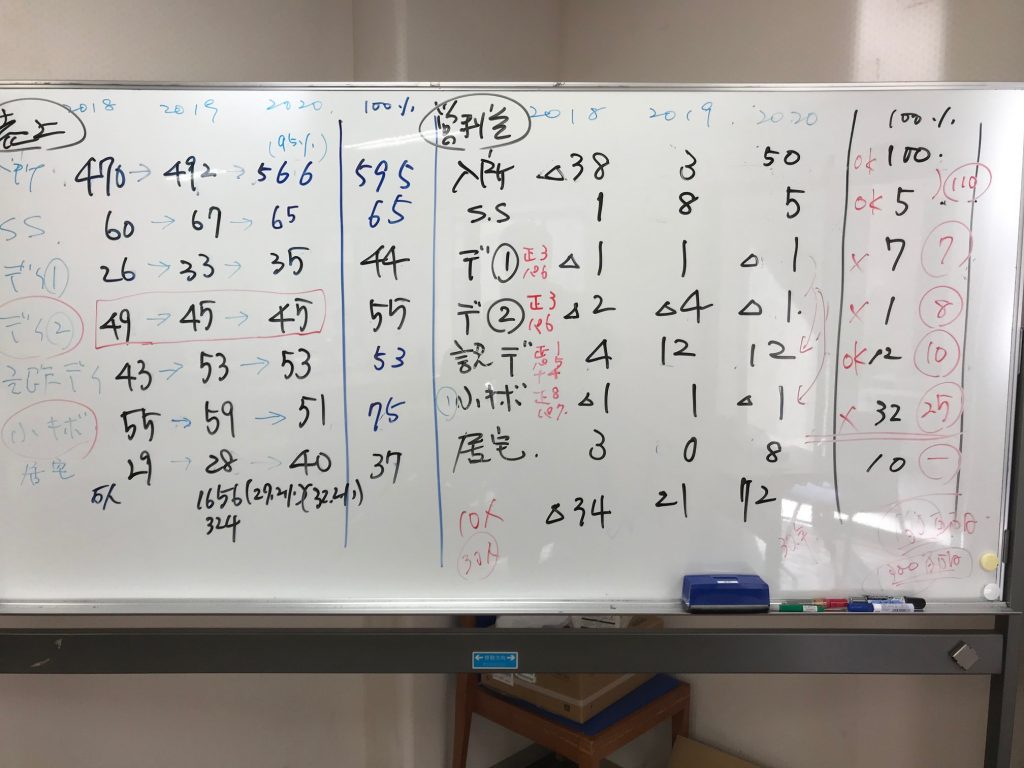 売上 2018 2019 2020 100% 営利差 2018 2019 2020 100%
(95%)
入所 470 → 492 → 566 595 入所 △38 3 50 ok 100 110
S.S. 60 → 67 → 65 65 S.S 1 8 5 ok 5
デイ① 26 → 33 → 35 44 デ① 正3 △1 1 △1 × 7 7
デイ② 49 → 45 → 45 55 デ② 正3 △2 △4 △1 × 1 8
認知デイ 43 → 53 → 53 53 認デ 4 12 12 ok 12 10
小キボ 55 → 59 → 51 75 ① 小キボ 正8 △1 1 △1 × 32 25
居宅 29 → 28 → 40 37 居宅. 3 0 8 10 一
1656 (29.2%) (32.2%)
324
10人 △34 21 72
30人